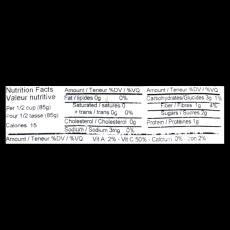 Nutrition Facts
Valeur nutritive
Per 1/2 cup (85g)
Pour 1/2 tasse (85g)
Calories 15
Amount / Teneur %DV / %VQ
Fat / lipides 0g 0%
Saturated / saturés 0
+ trans / trans 0g 0%
Cholesterol / Cholesterol 0g
Sodium / Sodium 3mg 0%
Amount / Teneur %DV / %VQ
Carbohydrates/Glucides 3g 1%
Fiber / Fibres 1g 4%
Sugars / Sucres 2g
Protein / Protéines 1g
Amount / Teneur %DV / %VQ Vit A 2% - Vit C 50% - Calcium 0% 2%